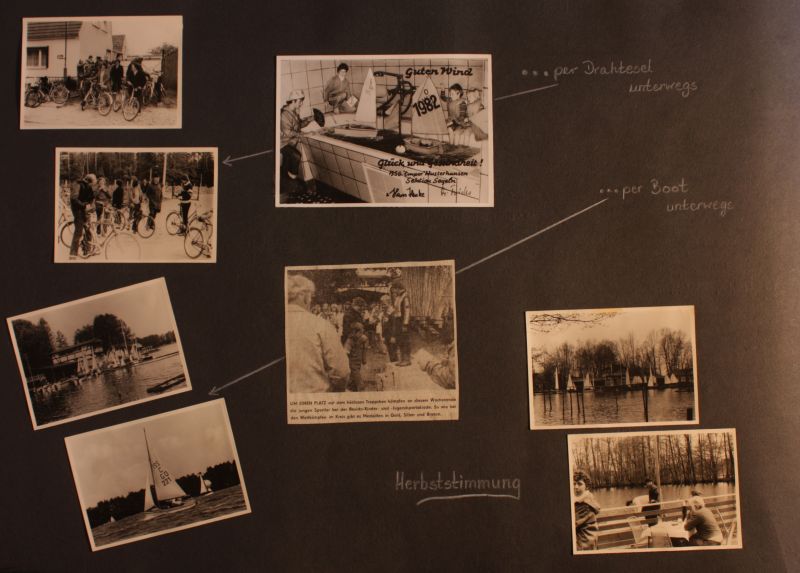 Guten Wind
1982
Glück und Gesundheit!
BSG "Empor" Wusterhausen
Sektion Segeln
... per Drahtesel
unterwegs
... per Boot
unterwegs
UM EINEN PLATZ auf dem höchsten Treppchen kämpfen an diesem Wochenende
die jungen Sportler bei der Bezirks-Kinder- und -Jugendspartakiade. So wie bei
den Wettkämpfen im Kreis gibt es Medaillen in Gold, Silber und Bronze.
Herbststimmung